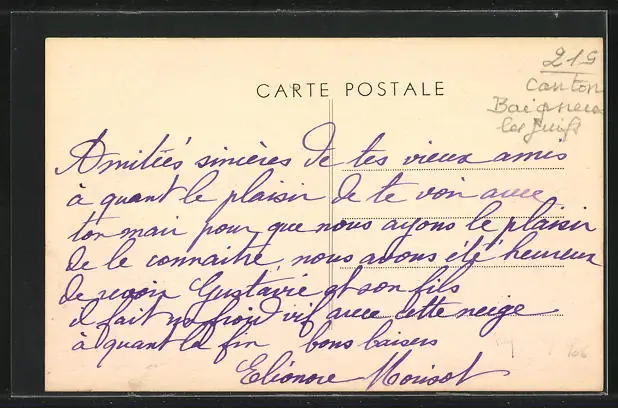 CARTE POSTALE
219
Canton
Baigneux
les Juifs
Amitiés sincères de tes vieux amis
à quant le plaisir de te voir avec
ton mari pour que nous ayons le plaisir
de le connaitre, nous avons été heureux
de revoir Gustavie et son fils
il fait un froid vif avec cette neige
à quant la fin bons baisers
Eléonore Morisot